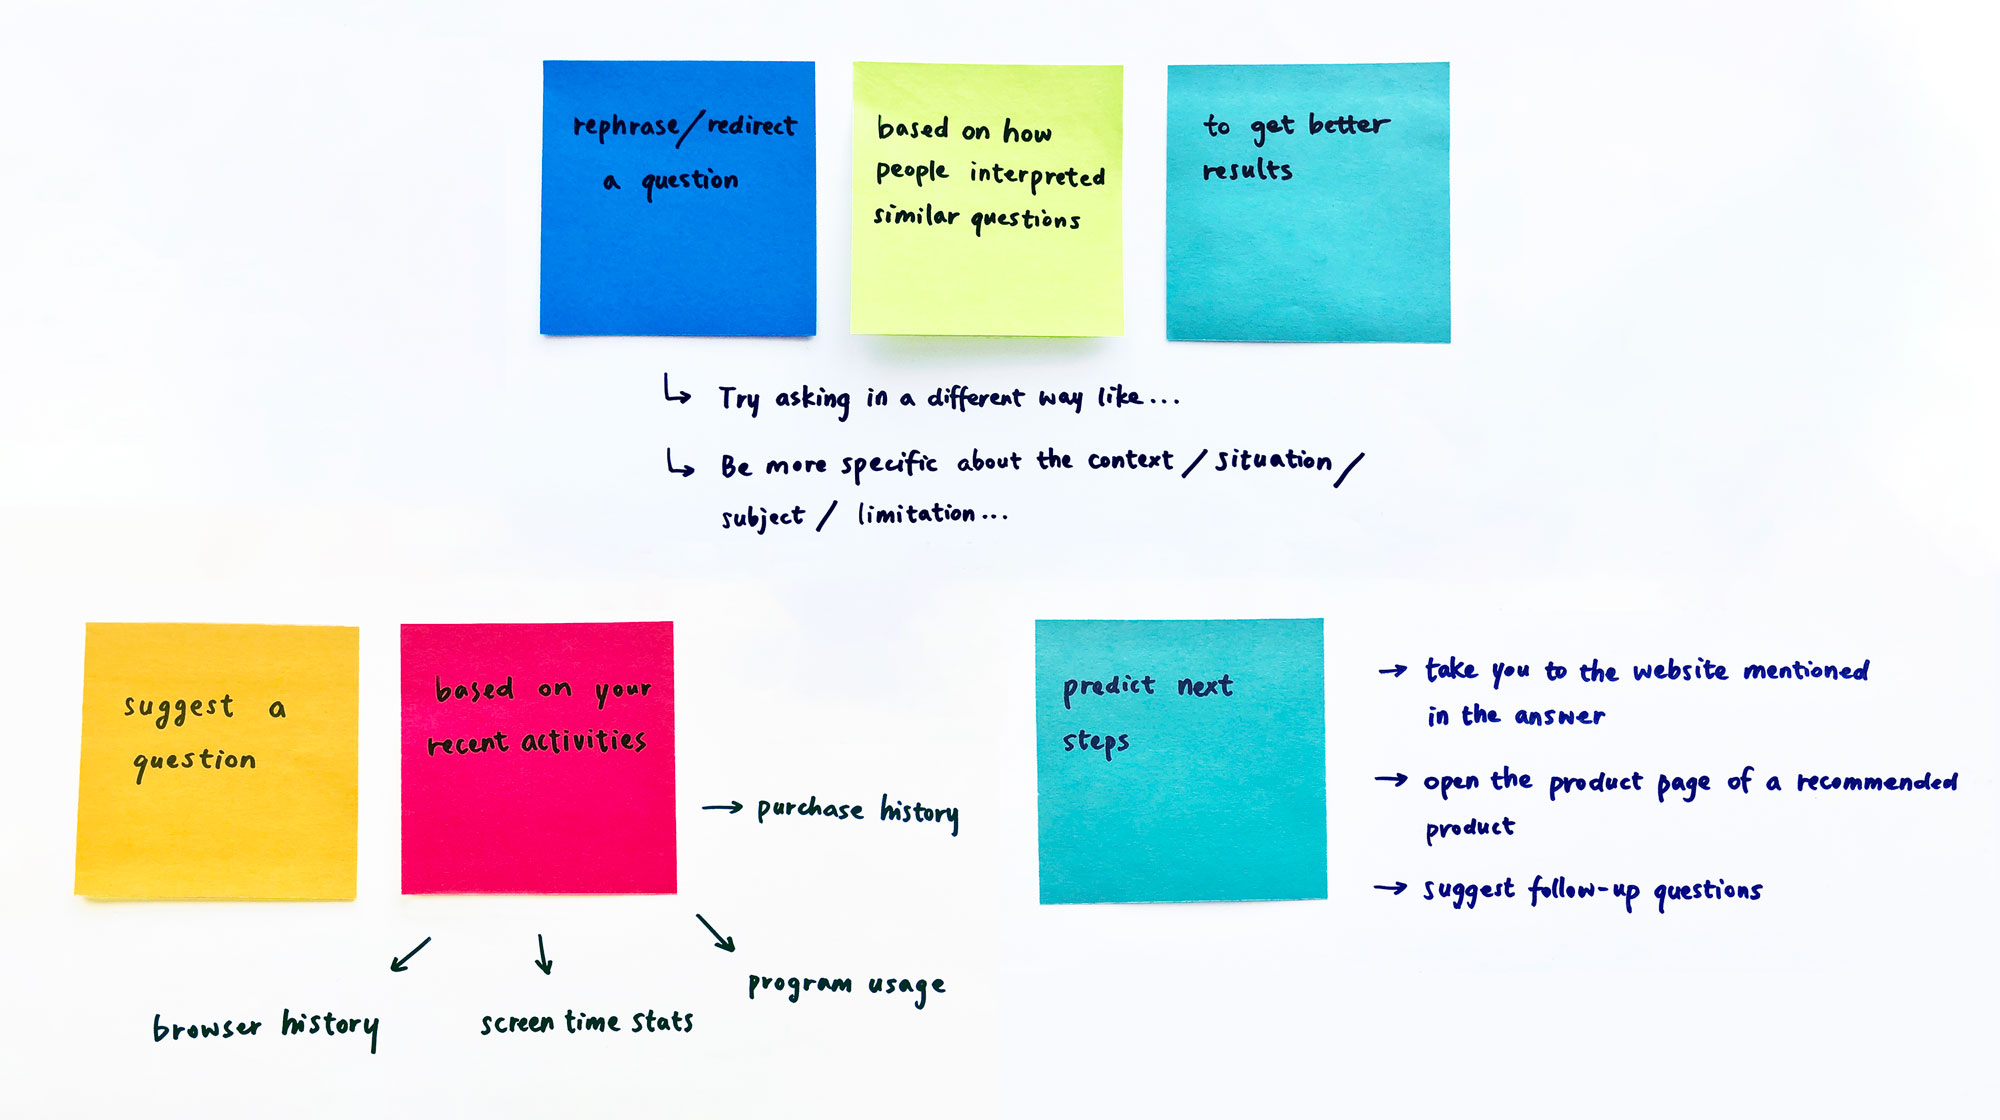 rephrase/redirect
a question
based on how
people interpreted
similar questions
to get better
results
Try asking in a different way like...
Be more specific about the context / situation /
subject / limitation...
suggest a
question
based on your
recent activities
purchase history
program usage
screen time stats
browser history
predict next
steps
take you to the website mentioned
in the answer
open the product page of a recommended
product
suggest follow-up questions